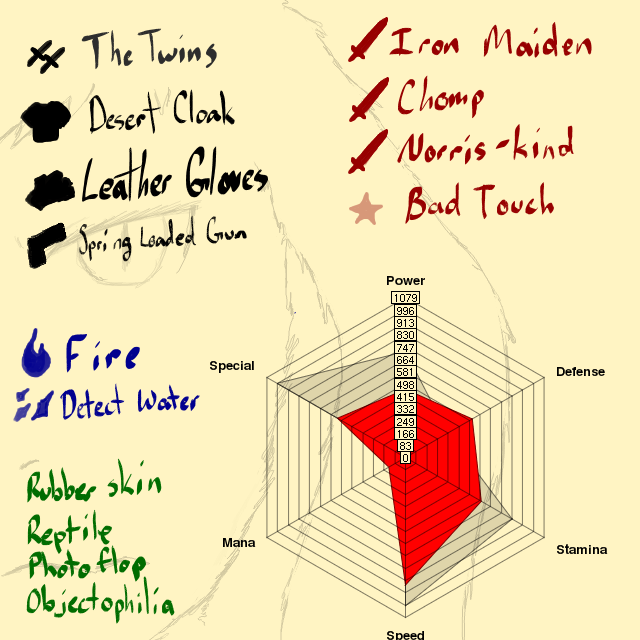 The Twins
Desert Cloak
Leather Gloves
Spring Loaded Gun
Iron Maiden
Chomp
Norris-kind
Bad Touch
Fire
Detect Water
Rubber skin
Reptile
Photo flop
Objectophilia
Power
1079
996
913
830
747
664
581
498
415
332
249
166
83
0
Special
Defense
Mana
Stamina
Speed